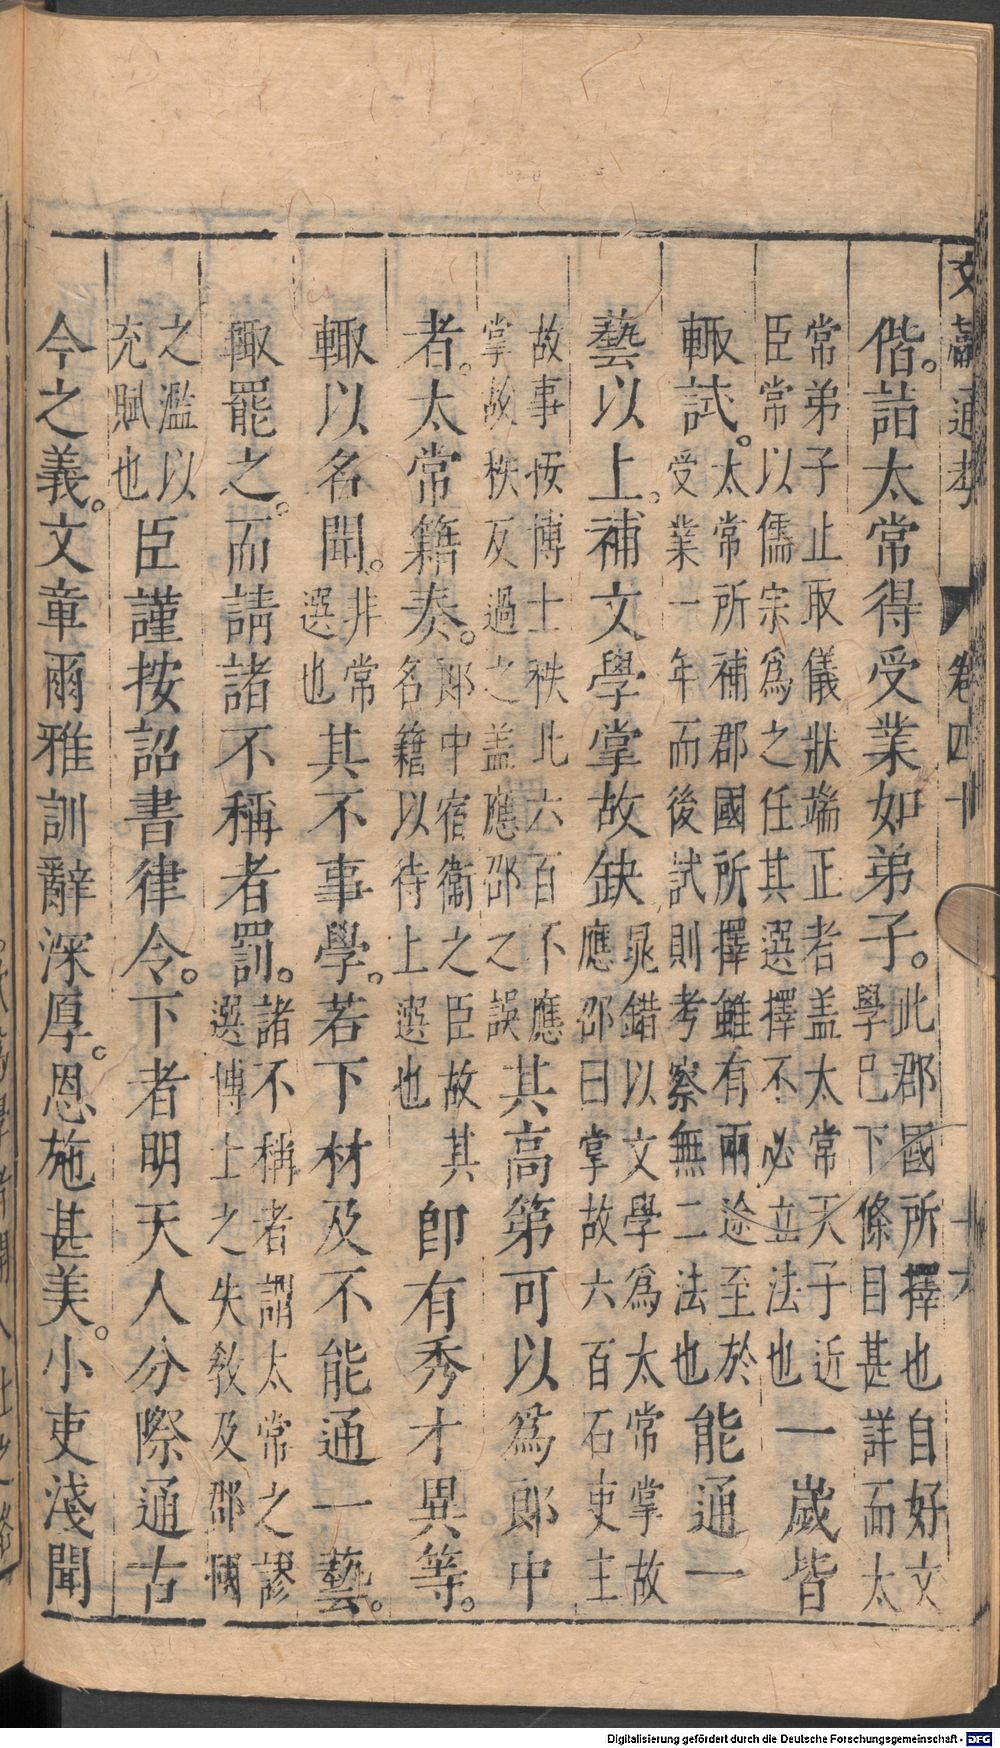 文獻通考 卷四十 十六
偕。詣太常得受業如弟子。此郡國所擇也自好文學已下條目甚詳而太
常弟子止取儀狀端正者盖太常天子近臣常以儒宗為之任其選擇不必立法也一歲皆
輙試。太常所補郡國所擇雖有兩途至於受業一年而後試則考察無二法也能通一
藝以上。補文學掌故缺晁錯以文學為太常掌故應邵曰掌故六百石吏主
故事按博士秩比六百不應掌故秩反過之盖應邵之誤其高第可以為郎中
者。太常籍奏。郎中宿衞之臣故其名籍以待上選也卽有秀才異等。
輙以名聞。非常選也其不事學。若下材及不能通一藝。
輙罷之。而請諸不稱者罰。諸不稱者謂太常之謬選博士之失敎及郡國
之濫以充賦也臣謹按詔書律令。下者明天人分際通古
今之義。文章爾雅訓辭深厚。恩施甚美。小吏淺聞
Digitalisierung gefördert durch die Deutsche Forschungsgemeinschaft - DFG